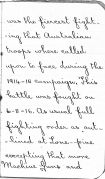 was the fiercest fight-
-ing that Australian
troops where called
upon to face during the
1914-18 campaign. This
battle was fought on
6-8-15. As usual full
fighting order as out-
-lined at Lone-pine
excepting that more
Machine Guns and